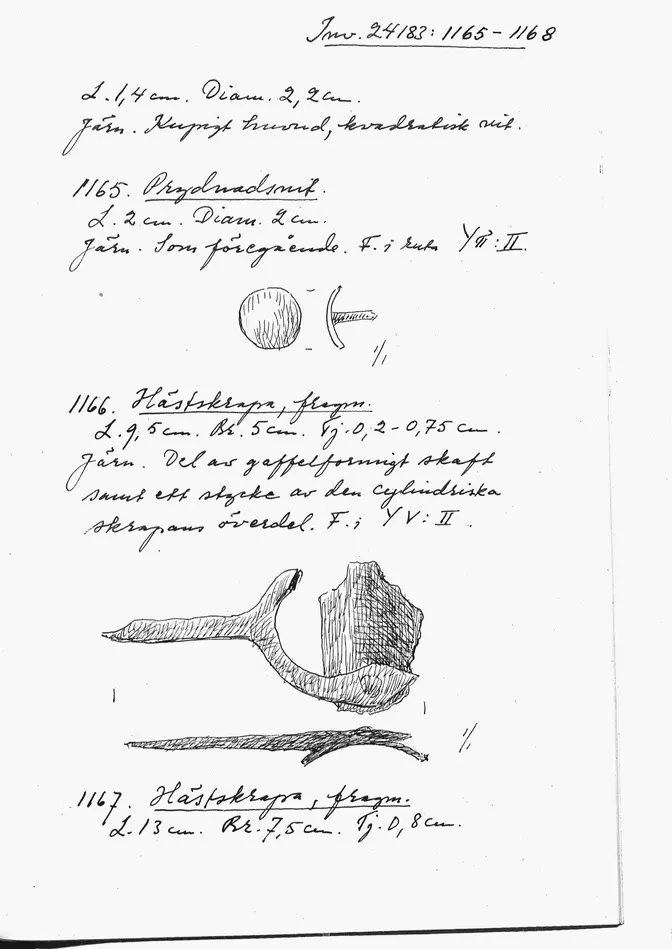 Inv. 24183: 1165-1168
L. 1,4 cm. Diam. 2,2 cm.
Järn. Kupigt huvud, kvadratisk nit.
1165. Prydnadsnit.
L. 2 cm. Diam. 2 cm.
Järn. Som föregående. F. i ruta Y : II.
1/1
1166. Hästskrapa, fragm.
L. 9,5 cm. Br. 5 cm. Tj. 0,2-0,75 cm.
Järn. Del av gaffelformigt skaft
samt ett stycke av den cylindriska
skrapans överdel. F. i Y V: II.
1/1
1167. Hästskrapa, fragm.
L. 13 cm. Br. 7,5 cm. Tj. 0,8 cm.